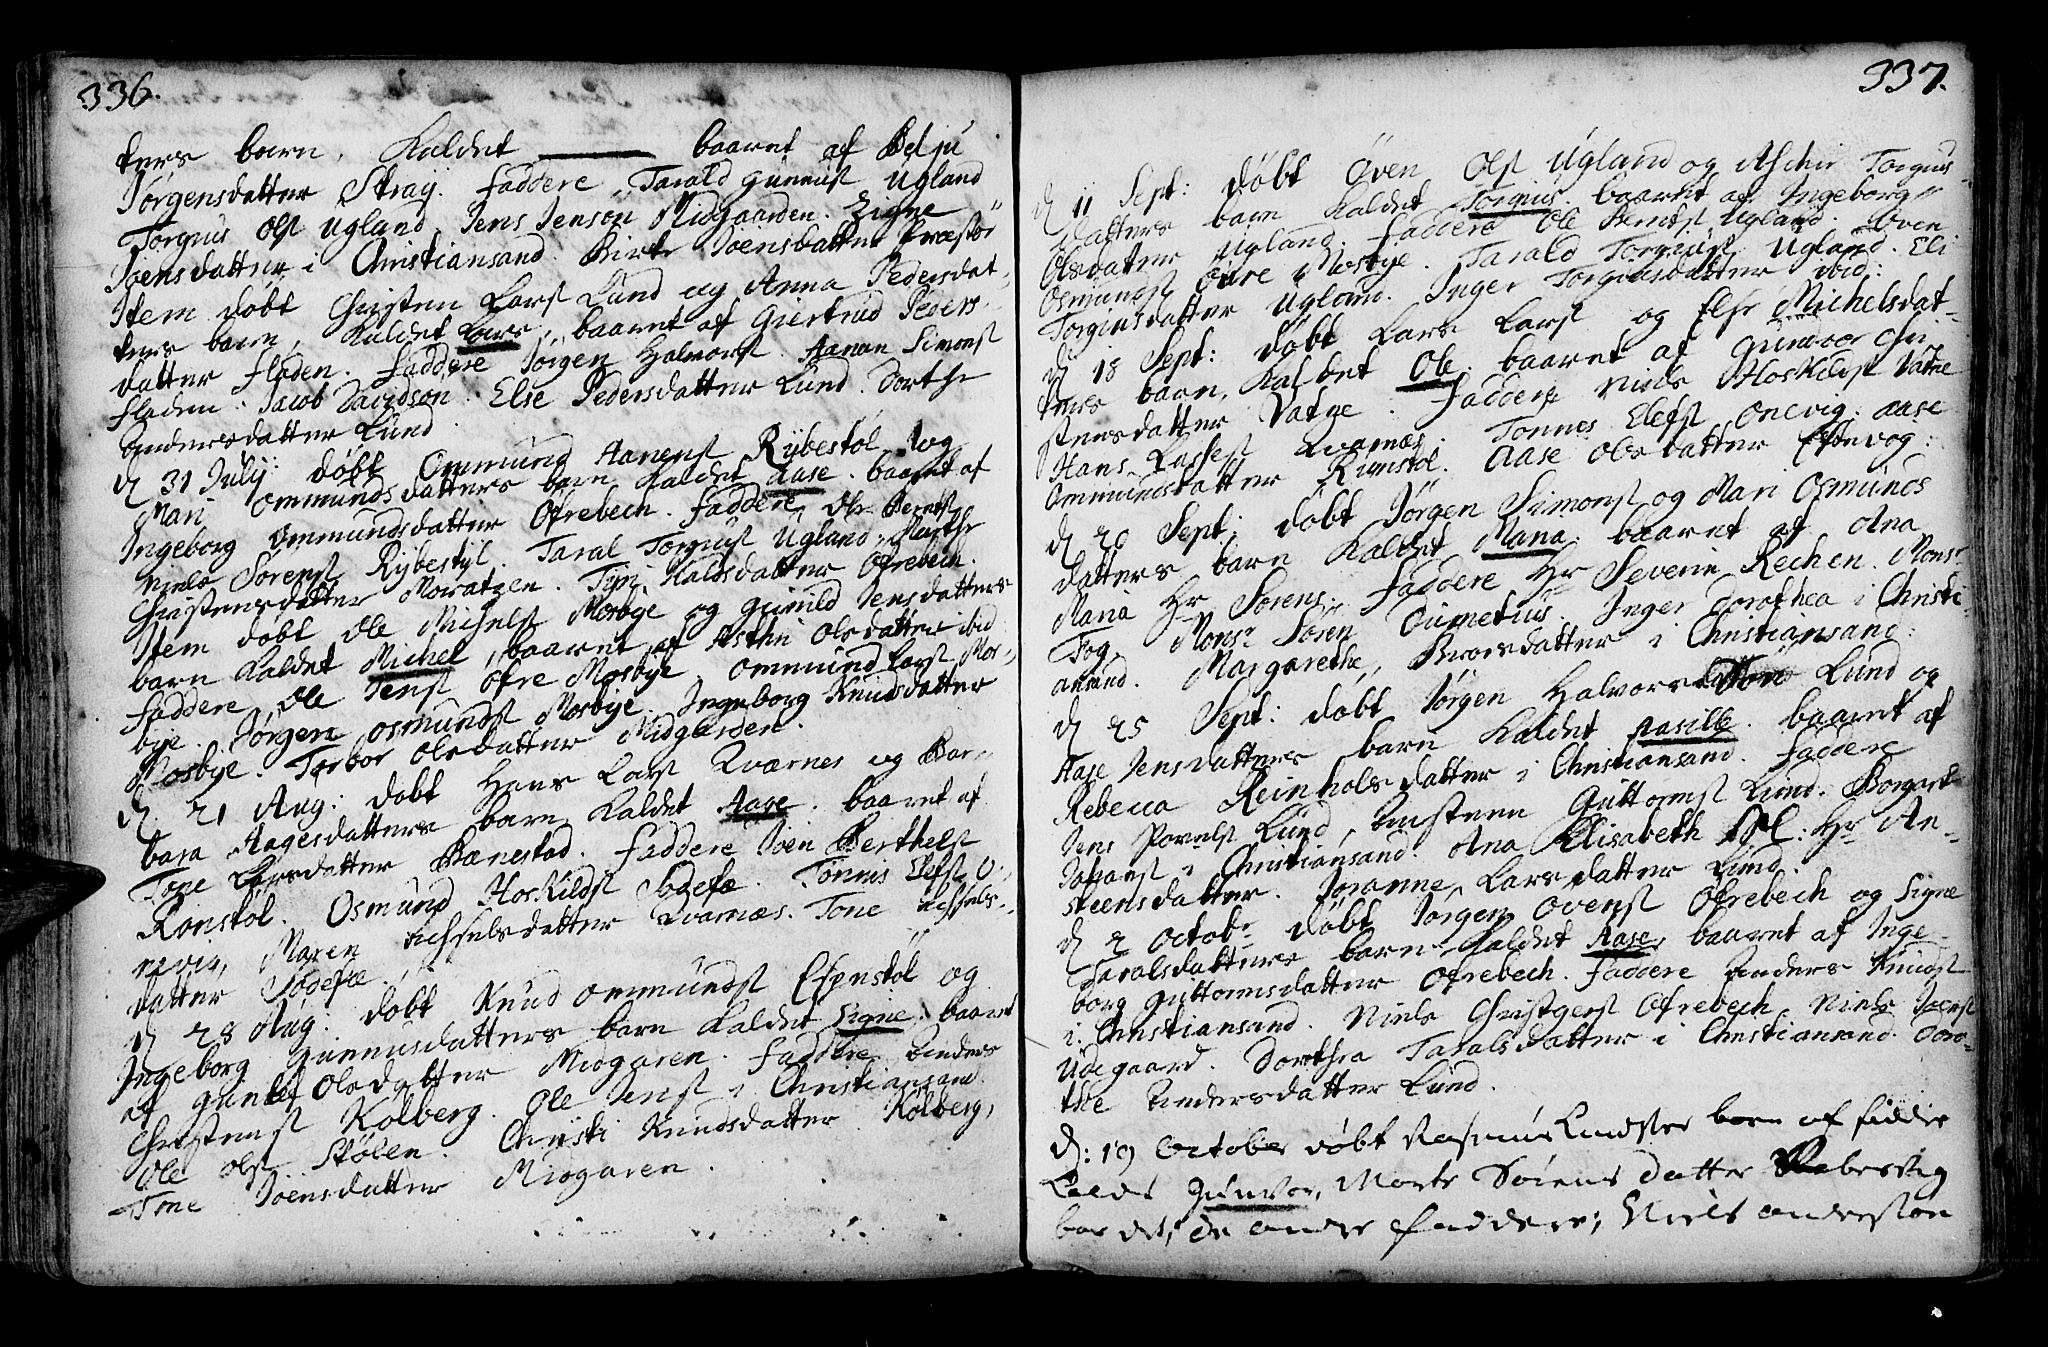 336.
ters barn, Kaldet ——— baaret af Bd ju
Jörgensdatter Straÿ. Faddere, Tarald gunnusl Ugland
Torgius Olsl Ugland, Jens Jensøn Midgaarden. Signe
Joensdatter i Christiansand. Birte Joensdatter
Item døbt Christen Larsl Lund og Anna Pedersdat-
ters barn, Kaldet Lars, baaret af Giertrud Peders-
datter Fladen. Faddere Jörgen Halvorsl. Aanan Simonsl
Fladen. Jacob Davidsøn. Else Pedersdatter Lund. Dorthe
Andersdatter Lund.
d 31 July: døbt Ommund Aanensl Rÿbestöl og
Mari Ommundsdatters barn Kaldet Aase. baaret af
Ingeborg Ommundsdatter Ofrebech. Faddere, Ole Berntsl
Niels Sörensl Rÿbestöl. Taral Torgiusl Ugland. Marthe
Christensdatter Moratzen. Tÿri Haldsdatter Ofrebech.
Item døbt Ole Michelsl Mosbÿe og Gunild Jensdatters
barn Kaldet Michel, baaret af Asthri Olsdatter ibid
Faddere, Ole Jensl Öfre Mosbÿe. Ommund Larsl Mos-
bÿe. Jörgen Osmundsl Mosbÿe. Ingeborg Knudsdatter
Mosbÿe. Torbor Olsdatter Midgarden.
d. 21 Aug: døbt Hans Larsl Qvarnes og Bar-
bara Aagesdatters barn Kaldet Aase. baaret af
Tone Larsdatter Bænestad. Faddere Joen Berthelsl
Ronstöl. Osmund Hoskildsl Lodefæ. Tönnis Elefsl O-
nevig, Maren Achselsdatter Qvarnæs. Tone Achsels-
datter Lodefæ.
d 28 Aug: døbt Knud Ommundsl Efenstöl og
Ingeborg Gunnusdatters barn Kaldet Signe. baaret
af Gunlef Olsdatter Midgaren. Faddere Anders
Christensl Kolberg. Ole Jensl i Christiansand.
Ole Olsl Stölen. Christi Knudsdatter Kolberg,
Tone Joensdatter Midgaren.
337.
d 11 Sept: døbt Öven Olsl Ugland og Aschir Torgius-
datters barn Kaldet Torgius. baaret af Ingeborg
Olsdatter Ugland. Faddere Ole Berntsl Ugland. Oven
Osmundsl Öfre Mosbÿe. Tarald Torgiusl Ugland. Eli
Torgiusdatter Ugland. Inger Torgiusdatter ibid:
d 18 Sept: døbt Lars Larsl og Else Michelsdat-
ters barn, Kaldet Ole. baaret af Gundvor Chri-
stensdatter Vatne. Faddere Niels Hoskildsl Vatne
Hans Lassesl Qvarnæs. Tonnes Elefsl Onevig. Aase
Ommundsdatter Runstöl. Aase Olsdatter Efsevog:
d 20 Sept: døbt Jörgen Simonsl og Mari Osmunds
datters barn Kaldet Maria. baaret af Ana
Maria Hr Sörens. Faddere Hr Severin Rechen. Monsr
Fog. Monsr Sören Inger Dorothea i Christi
ansand. Margarethe Brorsdatter i Christiansand:
d 25 Sept: døbt Jörgen Halvors Lund og
Aase Jensdatters barn Kaldet Aasille. baaret af
Rebecca Reinholsdatter i Christiansand. Faddere
Jens Povelsl Lund, Ansteen Guttormsl Lund. Borgart
Johansl i Christiansand. Ana Elisabeth Sl: Hr An-
steensdatter. Johanne Larsdatter Lund.
d 2 Octobr døbt Jörgen Ovensl Ofrebech og Signe
Taralsdatters barn Kaldet Aase, baaret af Inge-
borg Guttormsdatter Ofrebech. Faddere Anders Knudsl
i Christiansand. Niels Christensl Ofrebech, Niels Joensl
Udegaard. Dorthea Taralsdatter i Christiansand. Doro-
the Andersdatter Lund.
d: 19 October døbt Rasmus barn af
Kaldt Gunvor, Marte Sørens datter
bar det, de andre faddere; Niels anderson